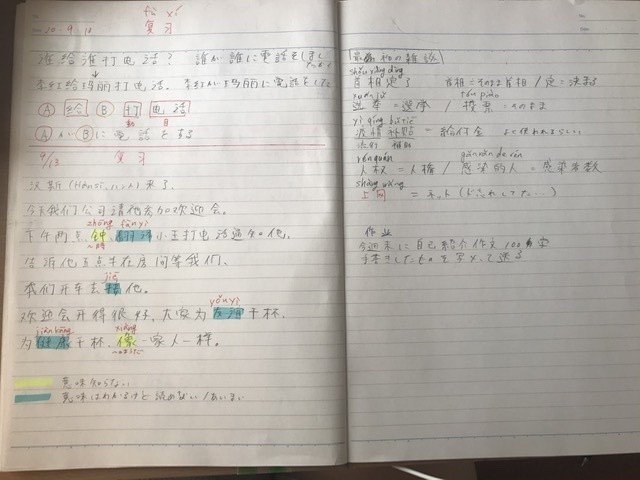 fù xí
复习
谁给谁打电话? 誰が誰に電話をしましたか
李红给玛丽打电话. 李紅が玛丽に電話をした
Ⓐ 给 Ⓑ 打 电话
動 目
ⒶがⒷに電話をする
9/13 复习
汉斯(Hànsī, ハンス)来了.
今天我们公司请他参加欢迎会.
zhōng fānyì
下午两点钟翻译小王打电话通知他,
〜時
告诉他五点半在房间等我们,
jiē
我们开车去接他。
欢迎会开得很好, 大家为友谊干杯.
yǒuyì
jiànkāng xiàng
为健康干杯, 像一家人一样。
意味知らない
意味はわかるけど読めない/あいまい
最後の雑談
shǒuxiàng dìng
首相定了 首相=そのまま首相/定=決まる
xuǎnjǔ tóupiào
选举=選挙/投票=そのまま
yìqíng bǔtiē
疫情补贴=給付金 よく使われるらしい
流行 補助
rénquán gǎnrǎn de rén
人权=人権/感染的人=感染者数
shàng wǎng
上网=ネット(ど忘れしてた…)
作业
今週末に自己紹介作文100字
手書きしたものを写メって送る